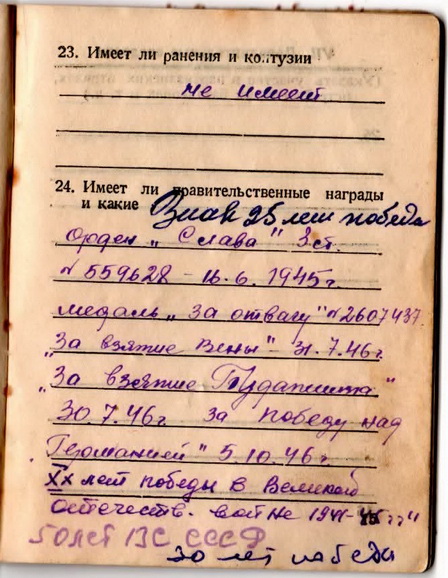 23. Имеет ли ранения и контузии
не имеет
24. Имеет ли правительственные награды
и какие Знак 25 лет победа
орден „Слава" 3 ст.
№ 559628 - 16.6.1945г.
медаль „за отвагу" № 2607437
„За взятие Вены" - 31.7.46г.
„За взятие Будапешта"
30.7.46г. За победу над
Германией" 5.10.46г.
XX лет победы в Великой
Отечеств. войне 1941-45 гг"
50 лет ВС СССР
30 лет победы